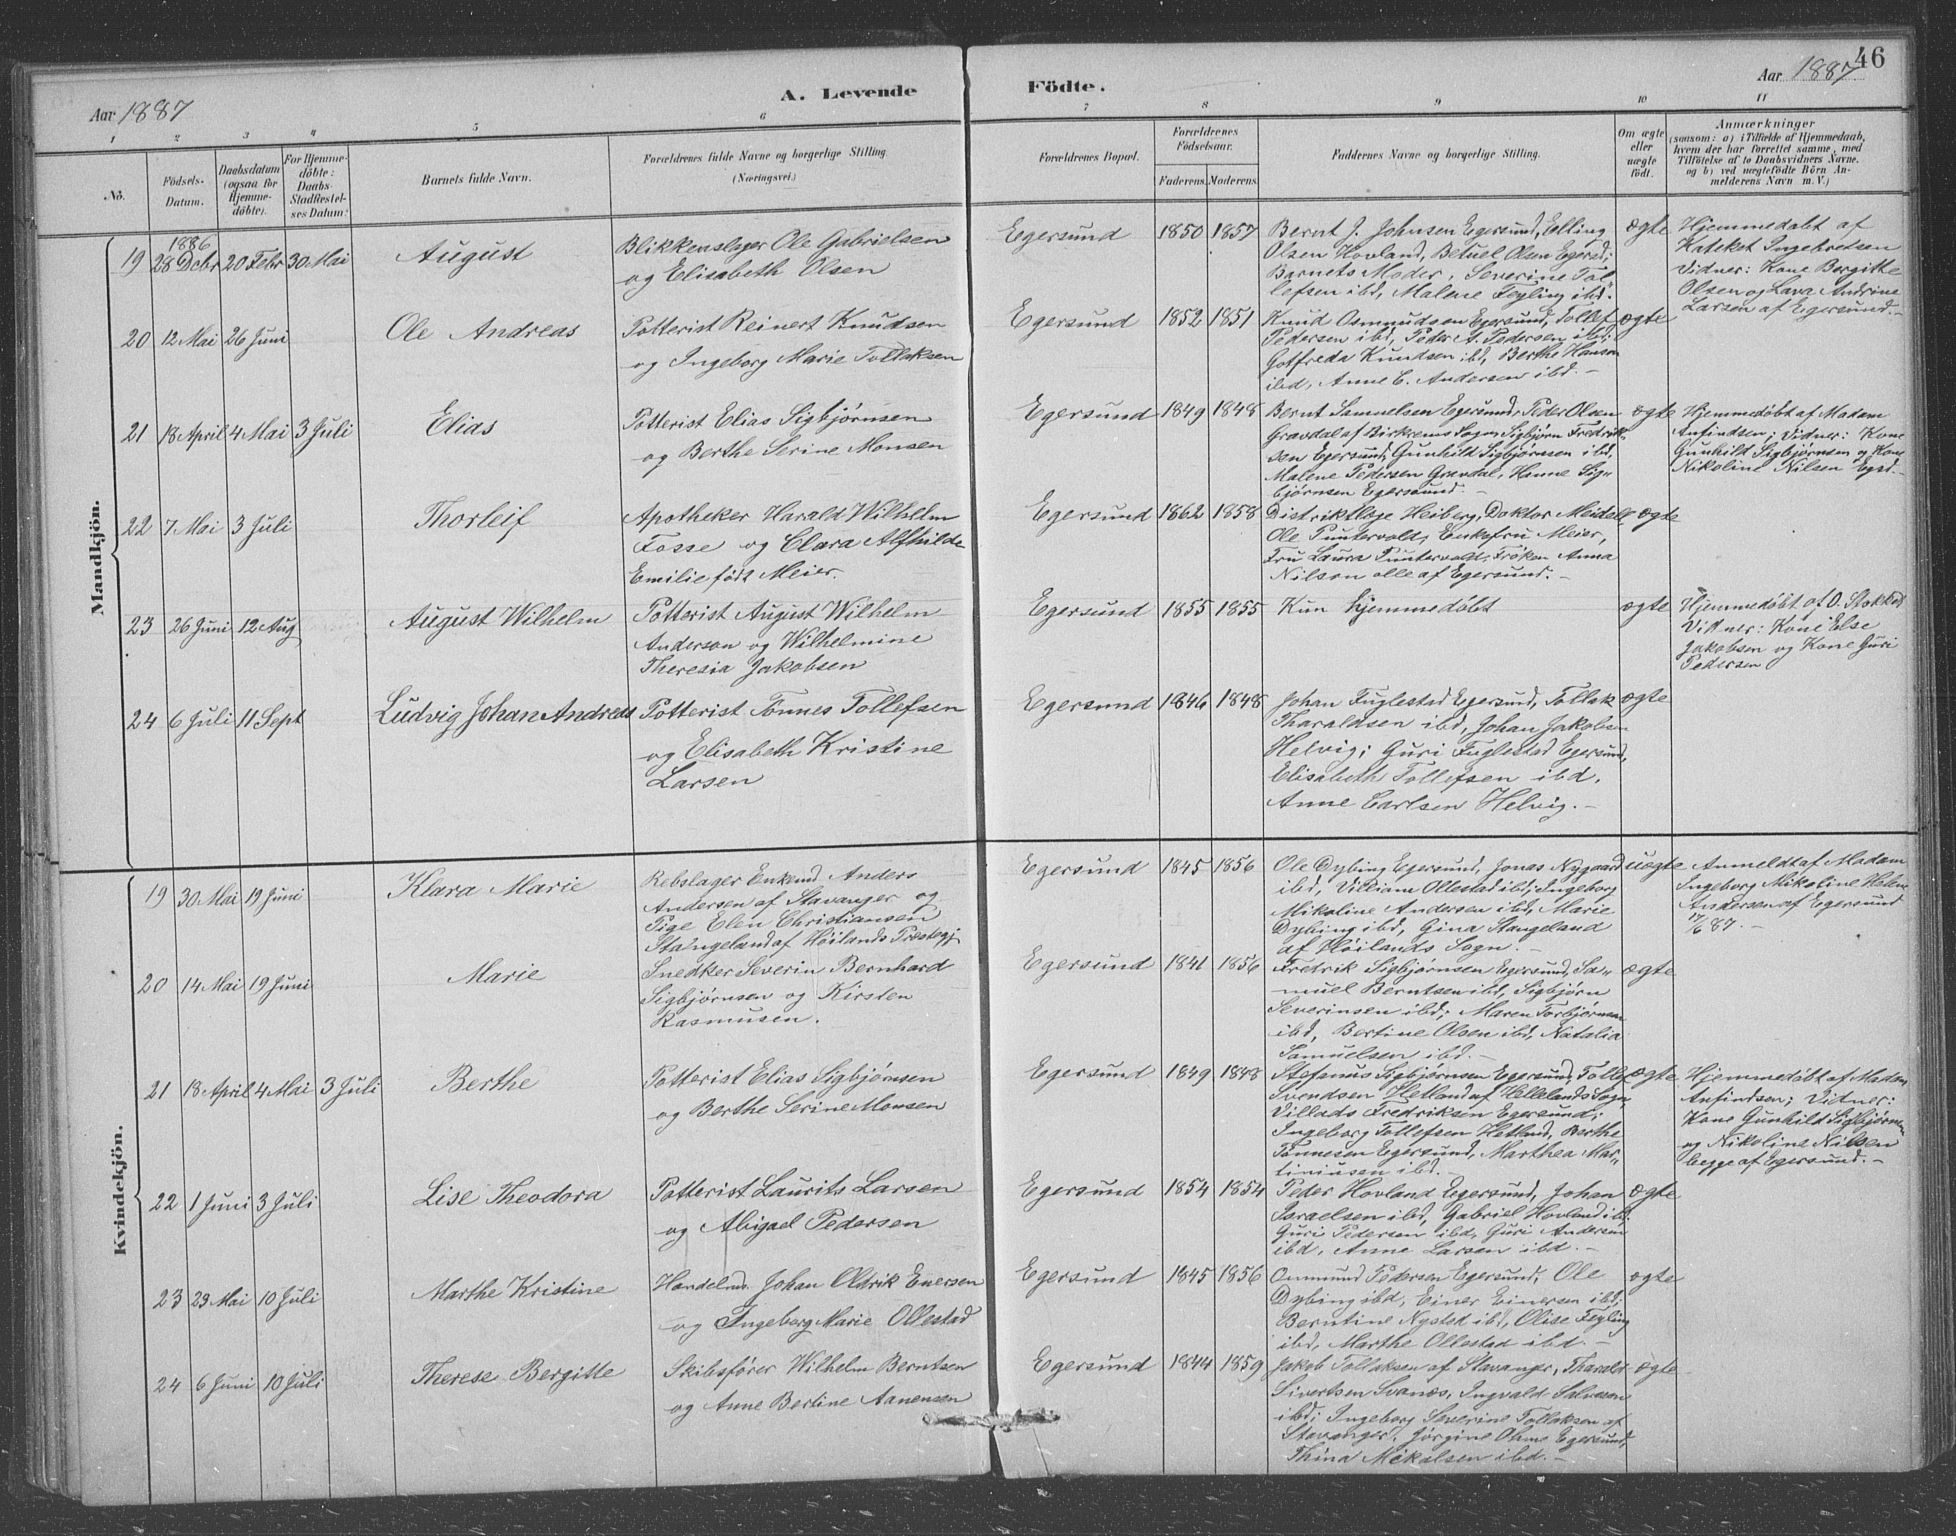 Aar 1887
A. Levende
Födte.
Aar 1887
46
1 2 3 4 5 6 7 8 9 10 11
No.
Födsels-
Datum.
Daabsdatum
(ogsaa for
Hjemme-
döbte).
For Hjemme-
döbte:
Daabs-
Stadfæstel-
ses Datum.
Barnets fulde Navn.
Forældrenes fulde Navne og borgerlige Stilling.
(Næringsvei.)
Forældrenes Bopæl.
Forældrenes
Födselsaar.
Faderens. Moderens.
Faddernes Navne og borgerlige Stilling.
Om ægte
eller
uægte
födt.
Anmærkninger
(saasom: a) i Tilfælde af Hjemmedaab,
hvem der har forrettet samme, med
Tilföielse af to Daabsvidners Navne.
og b) ved uægtefödte Börn An-
melderens Navn m. V.)
Mandkjön.
19 1886 28 Debr 20 Febr 30 Mai August
Blikkenslager Ole Gabrielsen
og Elisabeth Olsen
Egersund 1850 1857
Bernt J. Johnsen Egersund, Elling
Olsen Hovland, Betuel Olsen Egersd;
Barnets Moder, Severine Tol-
lefsen ibd, Malene Feyling ibd.
ægte
Hjemmedøbt af
Katekat Ingebretsen
Vidner: Kone Bergitte
Olsen og Lava Andrine
Larsen af Egersund.
20 12 Mai 26 Juni Ole Andreas
Potterist Reinert Knudsen
og Ingeborg Marie Tollaksen
Egersund 1852 1851
Knud Osmundsen Egersund, Tollef
Pedersen ibd, Peder A. Pedersen ibd;
Gotfreda Knudsen ibd, Berthe Hansen
ibd, Anne C. Andersen ibd.
ægte
21 18 April 4 Mai 3 Juli Elias
Potterist Elias Sigbjørnsen
og Berthe Serine Monsen
Egersund 1849 1848
Bernt Samuelsen Egersund, Peder Olsen
Gravdal af Birkrems Sogn, Sigbjørn Fredrik-
sen Egersund; Gunhild Sigbjørnsen ibd,
Malene Pedersen Gravdal, Hanne Sig-
bjørnsen Egersund.
ægte
Hjemmedøbt af Madam
Anfindsen; Vidner: Kone
Gunhild Sigbjørnsen og Kone
Nikoline Nilsen Egsd.
22 7 Mai 3 Juli Thorleif
Apotheker Harald Wilhelm
Fosse og Clara Alfhilde
Emilie født Meier.
Egersund 1862 1858
Distriktslæge Heiberg, Doktor Meidell
Ole Puntervold, Enkefru Meier,
Fru Laura Puntervold, Frøken Anna
Nilsen alle af Egersund.
ægte
23 26 Juni 12 Aug August Wilhelm
Potterist August Wilhelm
Anderson og Wilhelmine
Theresia Jakobsen
Egersund 1855 1855
Kun hjemmedøbt
ægte
Hjemmedøbt af O. Stokke
Vidner: Kone Else
Jakobsen og Kone Guri
Pedersen
24 6 Juli 11 Sept Ludvig Johan Andreas
Potterist Tønnes Tollefsen
og Elisabeth Kristine
Larsen
Egersund 1846 1848
Johan Fuglestad Egersund, Tollak
Tharaldsen ibd, Johan Jakobsen
Helvig; Guri Fuglestad Egersund,
Elisabeth Tollefsen ibd.
Anne Carlsen Helvig.
ægte
Kvindekjön.
19 30 Mai 19 Juni Klara Marie
Rebslager Enkemd Anders
Andersen af Stavanger og
Pige Elen Christiansen
Stangeland af Høilands Prestegj.
Egersund 1845 1856
Ole Dybing Egersund, Jonas Nygaard
ibd, Villiam Ollestad ibd; Ingeborg
Mikoline Andersen ibd, Marie
Dybing ibd, Gina Stangeland
af Høilands Sogn.
uægte
Anmeldt af Madam
Ingeborg Mikoline Helene
Andersen af Egersund
17/6 87.
20 14 Mai 19 Juni Marie
Snedker Severin Bernhard
Sigbjørnsen og Kirsten
Rasmusen.
Egersund 1841 1856
Fredrik Sigbjørnsen Egersund, Sa-
muel Berntsen ibd, Sigbjørn
Severinsen ibd; Maren Torbjørnsen
ibd, Bertine Olsen ibd, Natalia
Samuelsen ibd.
ægte
21 18 April 4 Mai 3 Juli Berthe
Potterist Elias Sigbjørnsen
og Berthe Serine Monsen
Egersund 1849 1848
Stefanus Sigbjørnsen Egersund, Tollef
Svendsen Hetland af Hellelands Sogn,
Villads Fredriksen Egersund;
Ingeborg Tollefsen Hetland, Berthe
Tønnesen Egersund, Marthea Mar-
tiniusen ibd.
ægte
Hjemmedøbt af Madam
Anfindsen; Vidner:
Kone Gunhild Sigbjørnsen
og Nikoline Nilsen
begge af Egersund.
22 1 Juni 3 Juli Lise Theodora
Potterist Laurits Larsen
og Abigael Pedersen
Egersund 1854 1854
Peder Hovland Egersund, Johan
Israelsen ibd, Gabriel Hovland ibd.
Guri Pedersen ibd, Guri Andersen
ibd, Anne Larsen ibd.
ægte
23 23 Mai 10 Juli Marthe Kristine
Handelsm. Johan Oldrik Enersen
og Ingeborg Marie Ollestad
Egersund 1845 1856
Ommund Pedersen Egersund, Ole
Dybing ibd, Einer Einersen ibd;
Berntine Nysted ibd, Olise Feyling
ibd, Marthe Ollestad ibd.
ægte
24 6 Juni 10 Juli Therese Bergitte
Skibsfører Wilhelm Berntsen
og Anne Bertine Aanensen
Egersund 1844 1859
Jakob Tollaksen af Stavanger, Tharald
Sivertsen Svanæs, Ingvald Salvesen
ibd; Ingeborg Severine Tollaksen af
Stavanger, Jørgine Ohms Egersund,
Thina Mikalsen ibd.
ægte